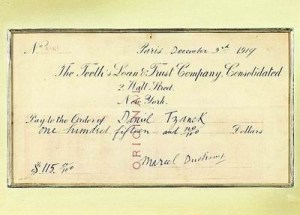 No
Paris December 3rd 1919
The Teeth's Loan & Trust Company, Consolidated
2 Wall Street.
New York.
Pay to the Order of Daniel Tzanck
one hundred fifteen and no/100 Dollars
$ 115.00/100
Marcel Duchamp
ORIGINAL